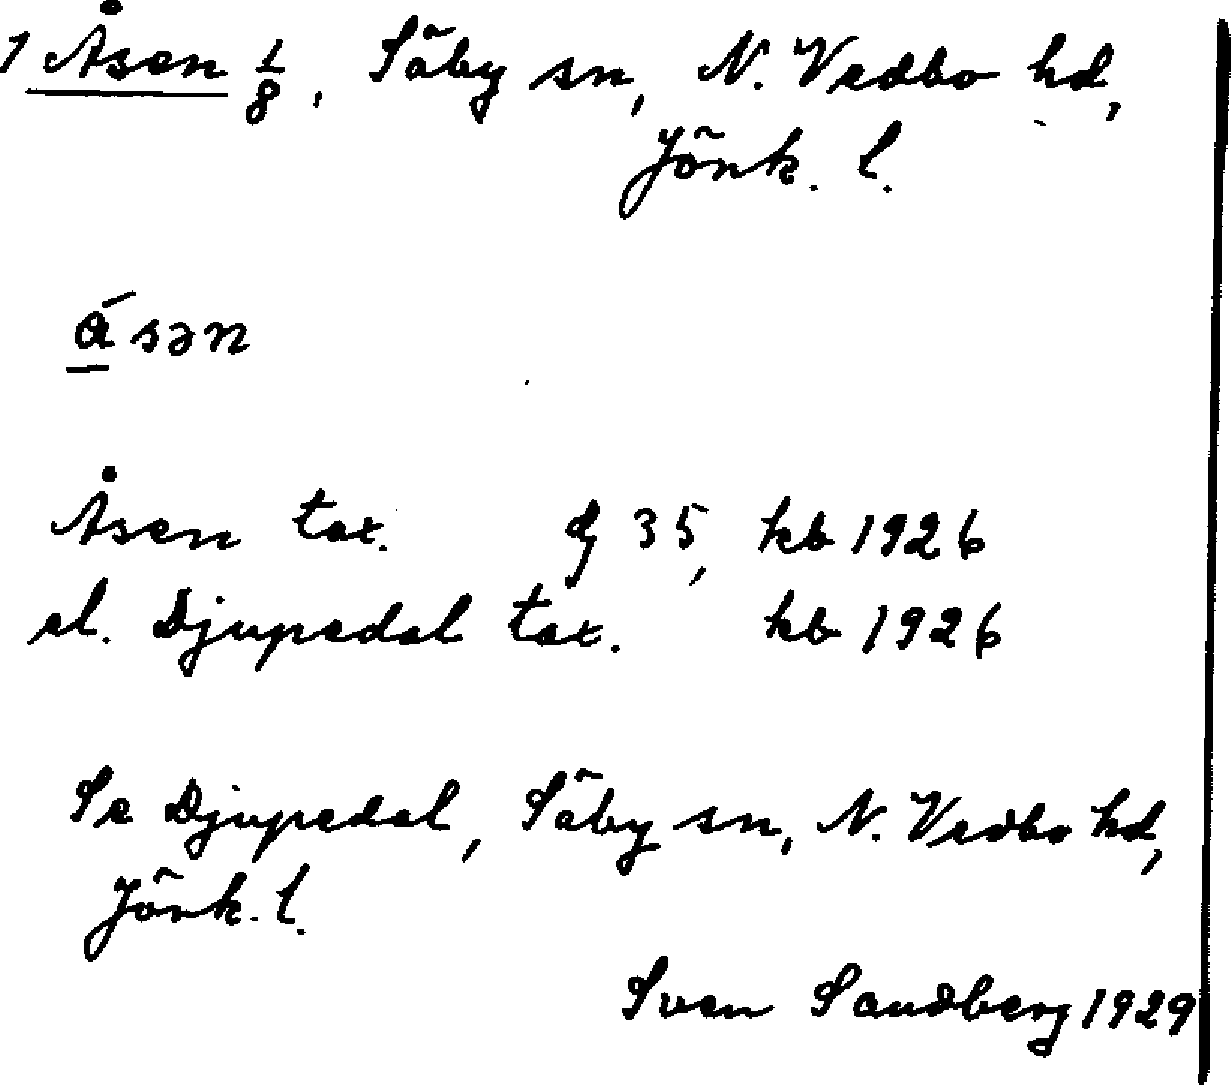 1 Åsen 1/8, Säby sn, N. Vedbo hd,
Jönk. l.
ásən
Åsen tax. 35, kb 1926
el. Djupedal tax. kb 1926
Se Djupedal, Säby sn, N. Vedbo hd,
Jönk. l.
Sven Sandberg 1929